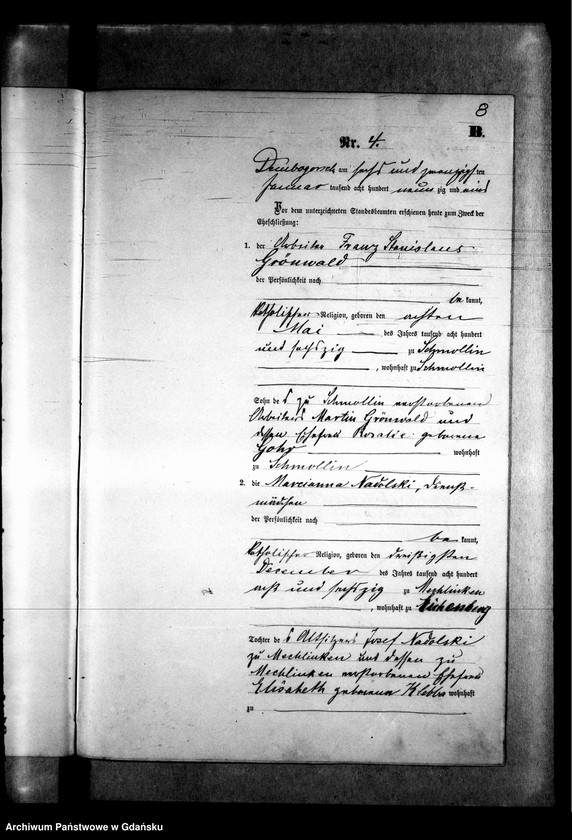 8
B.
Nr. 4.
Dembogorsch am sechs und zwanzigsten
Januar tausend acht hundert neunzig und eins
Vor dem unterzeichneten Standesbeamten erschienen heute zum Zweck der
Eheschließung:
1. der Arbeiter Franz Stanislaus
Grönwald
der Persönlichkeit nach
bekannt,
katholischer Religion, geboren den achten
Mai des Jahres tausend acht hundert
und sechszig zu Schmollin
, wohnhaft zu Schmollin
Sohn des zu Schmollin verstorbenen
Arbeiters Martin Grönwald und
dessen Ehefrau Rosalie geborene
Gohr wohnhaft
zu Schmollin
2. die Marcianna Nadolski, Dienst-
mädchen
der Persönlichkeit nach
bekannt,
katholischer Religion, geboren den dreißigsten
December des Jahres tausend acht hundert
acht und sechszig zu Mechlinken
, wohnhaft zu Eichenberg
Tochter des Altsitzers Josef Nadolski
zu Mechlinken und dessen zu
Mechlinken verstorbenen Ehefrau
Elisabeth geborenen wohnhaft
zu
Archiwum Państwowe w Gdańsku